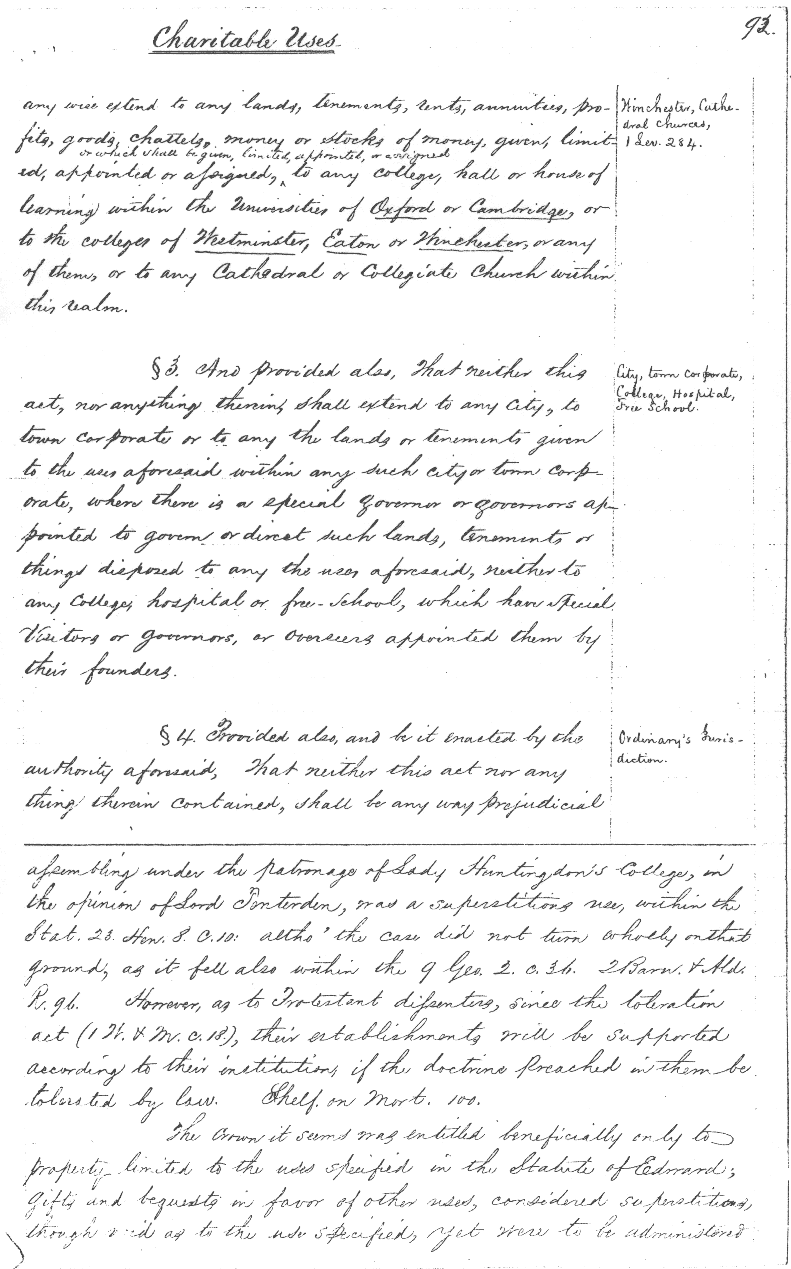 93.
Charitable Uses.
any wise extend to any lands, tenements, rents, annuities, pro-
fits, goods, chattels, money or stocks of money, given, limit-
or which shall be given, limited, appointed, or assigned
ed, appointed or assigned, ‸ to any college, hall or house of
learning within the Universities of Oxford or Cambridge, or
to the colleges of Westminster, Eaton or Winchester, or any
of them, or to any Cathedral or Collegiate Church within
this realm.
Winchester, Cathe-
dral Churches,
1 Lev. 284.
§3. And provided also, That neither this
act, nor anything therein, shall extend to any City, to
town corporate or to any the lands or tenements given
to the uses aforesaid within any such city or town corp-
orate, where there is a special governor or governors ap-
pointed to govern or direct such lands, tenements or
things disposed to any the uses aforesaid, neither to
any College, hospital or free-School, which have special
Visitors or governors, or overseers appointed them by
their founders.
City, town corporate,
College, Hospital,
Free School.
§4. Provided also, and be it enacted by the
authority aforesaid, That neither this act nor any
thing therein contained, shall be any way prejudicial
Ordinary's Juris-
diction.
assembling under the patronage of Lady Huntingdon's College, in
the opinion of Lord Tenterden, was a superstitious use, within the
Stat. 23. Hen. 8. C. 10: altho' the case did not turn wholly on that
ground, as it fell also within the 9 Geo. 2. c. 36. 2 Barn. & Ald.
R. 96. However, as to Protestant dissenters, since the toleration
act (1 W. & M. c. 18), their establishments will be supported
according to their institution, if the doctrine preached in them be
tolerated by law. Shelf. on Mort. 100.
The Crown it seems was entitled beneficially only to
property limited to the uses specified in the Statute of Edward;
Gifts and bequests in favor of other uses, considered superstitious,
though void as to the use specified, yet were to be administered